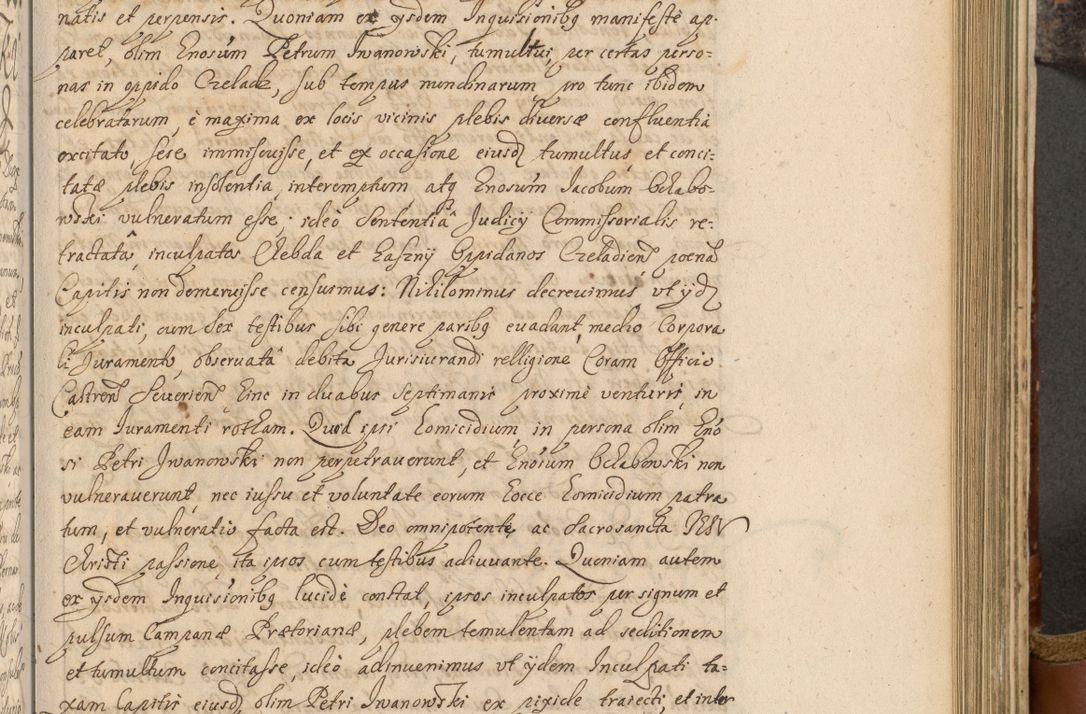 natis et perpensis. Quoniam ex ysdem Inquisitionibq manifestè ap-
paret, olim Gnosum Petrum Iwanowski, tumultui, per certas perso:
nas in oppido Czeladz, sub tempus nundinarum, pro tunc ibidem
celebratarum, è maxima ex locis vicinis plebis diversæ confluentia
excitato, sese immiscuisse, et ex occasione eiusd tumultus, et conci:
tatæ plebis insolentia, interemptum atq Gnosum Iacobum
wski vulneratum esse; ideò Sententiâ Iudicij Commissorialis re-
tractatâ, inculpatos Chebda et Oppidanos Czeladien pœnã
Capitis non demeruisse censuimus: Nihilominus decrevimus, vt ijd
inculpati, cum sex testibus sibi genere paribq evadant, medio Corpora
li Iuramento, observatâ debita Iurisiurandi relligione, Coram Officio
Castren Severien, hinc in duabus septimanis proximè venturis, in
eam Iuramenti rotham. Quod ipsi homicidium in persona olim Gno
si Petri Iwanowski non perpetraverunt, et Gnosum non
vulneraverunt, nec iussu et voluntate eorum hocce homicidium patra
tum, et vulneratio facta est. Deo omnipotente, ac Sacrosancta IESV
Christi passione, ita ipsos cum testibus adiuvante. Quoniam autem
ex ysdem Inquisitionibq lucidè constat, ipsos inculpatos per signum et
pulsum Campanæ Prætorianæ, plebem temulentam ad seditionem
et tumultum concitasse, ideò adinvenimus vt ydem Inculpati ta=
xam Capitis eiusd olim Petri Iwanowski ex pixide traiecti, et inter